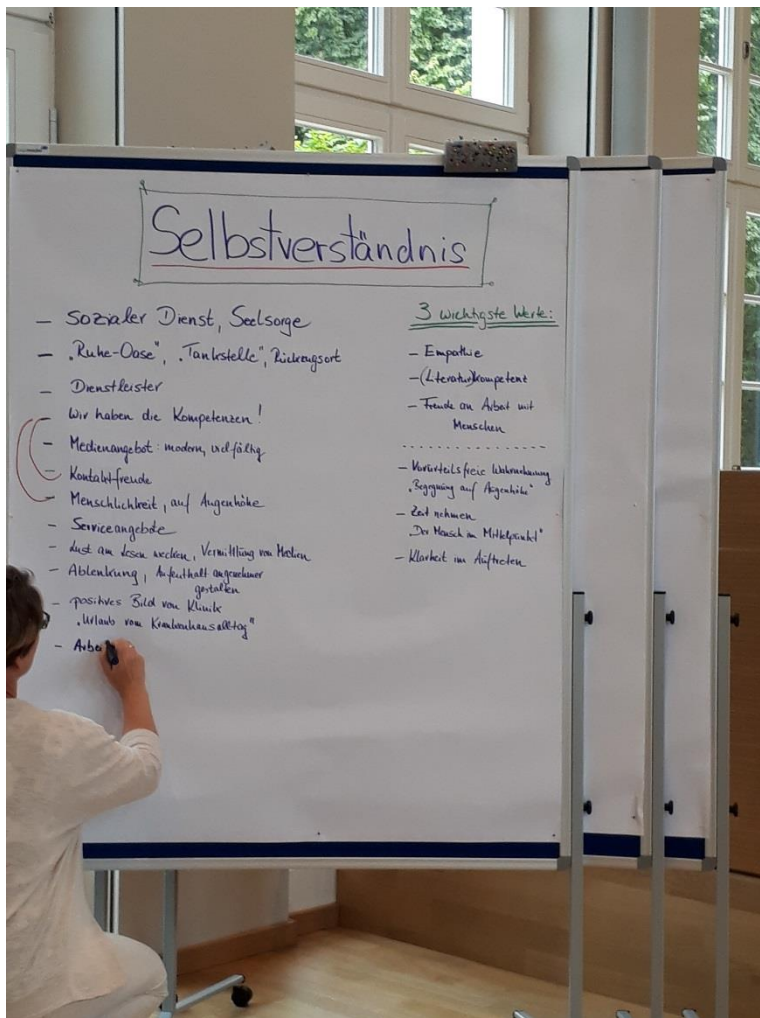 Selbstverständnis
- sozialer Dienst, Seelsorge
- „Ruhe-Oase", „Tankstelle", Rückzugsort
- Dienstleister
- Wir haben die Kompetenzen!
- Medienangebot: modern, vielfältig
- Kontaktfreude
- Menschlichkeit, auf Augenhöhe
- Serviceangebote
- Lust am Lesen wecken, Vermittlung von Medien
- Ablenkung, Aufenthalt angenehmer
gestalten
- positives Bild von Klinik
„Urlaub vom Krankenhausalltag"
- Arbei
3 wichtigste Werte:
- Empathie
- (Literatur)kompetent
- Freude an Arbeit mit
Menschen
- Vorurteilsfreie Wahrnehmung
„Begegnung auf Augenhöhe"
- Zeit nehmen
„Der Mensch im Mittelpunkt"
- Klarheit im Auftreten